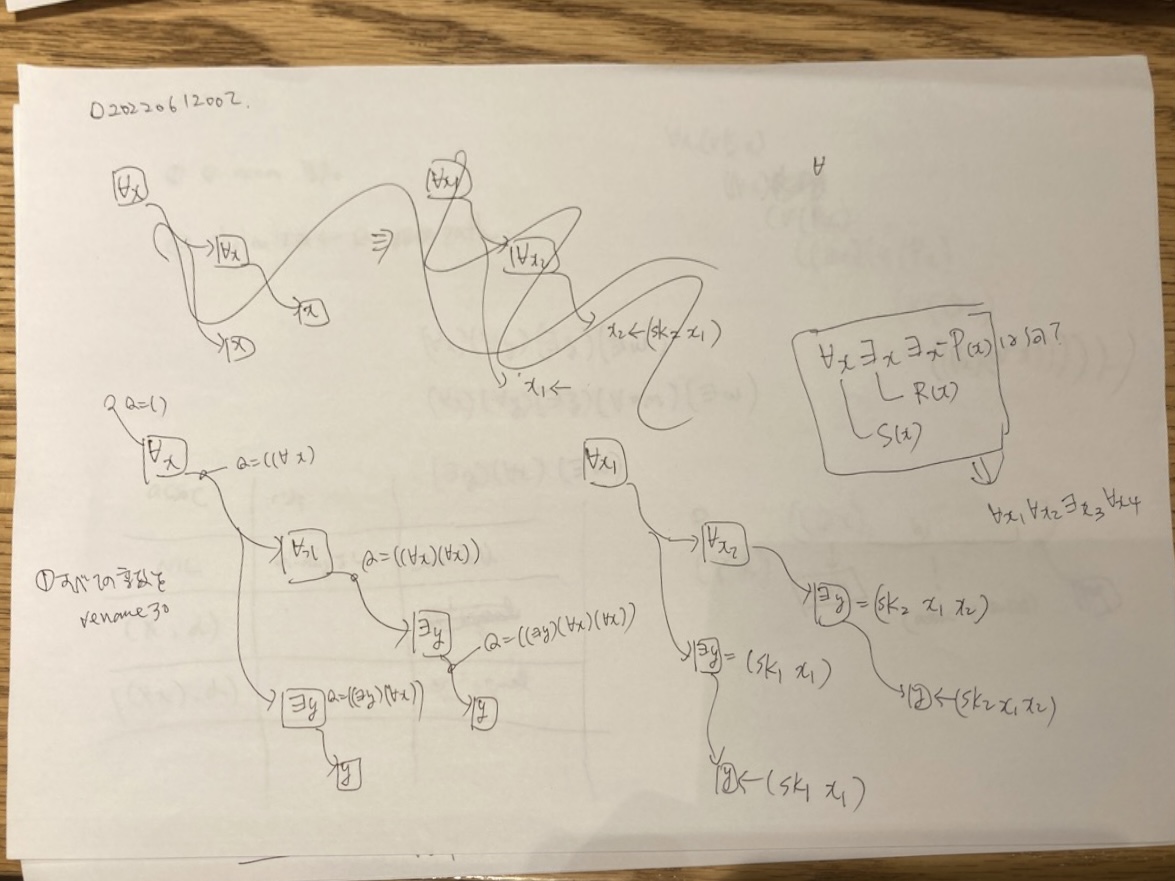 D20220612002.
∀x
∀x
x
x
≡
∀x1
∀x2
x2←(sk2 x1)
x1←
∀
∀x ∃x ∃x P(x) は何?
R(x)
S(x)
⇓
∀x1 ∀x2 ∃x3 ∀x4
Q=()
∀x
Q=((∀x)
Q=((∀x)(∀x))
∃y
Q=((∃y)(∀x)(∀x))
y
∃y Q=((∃y)(∀x))
y
①すべての変数を
renameする
∀x1
∀x2
∃y = (sk2 x1 x2)
∃y = (sk1 x1)
y←(sk2 x1 x2)
y←(sk1 x1)